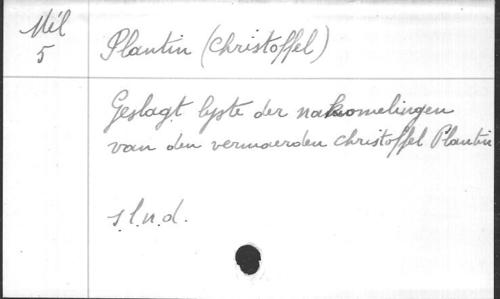 Mél
5
Plantin (Christoffel)
Geslagt lyste der nakomelingen
van den vermaerden Christoffel Plantin
s.l.n.d.